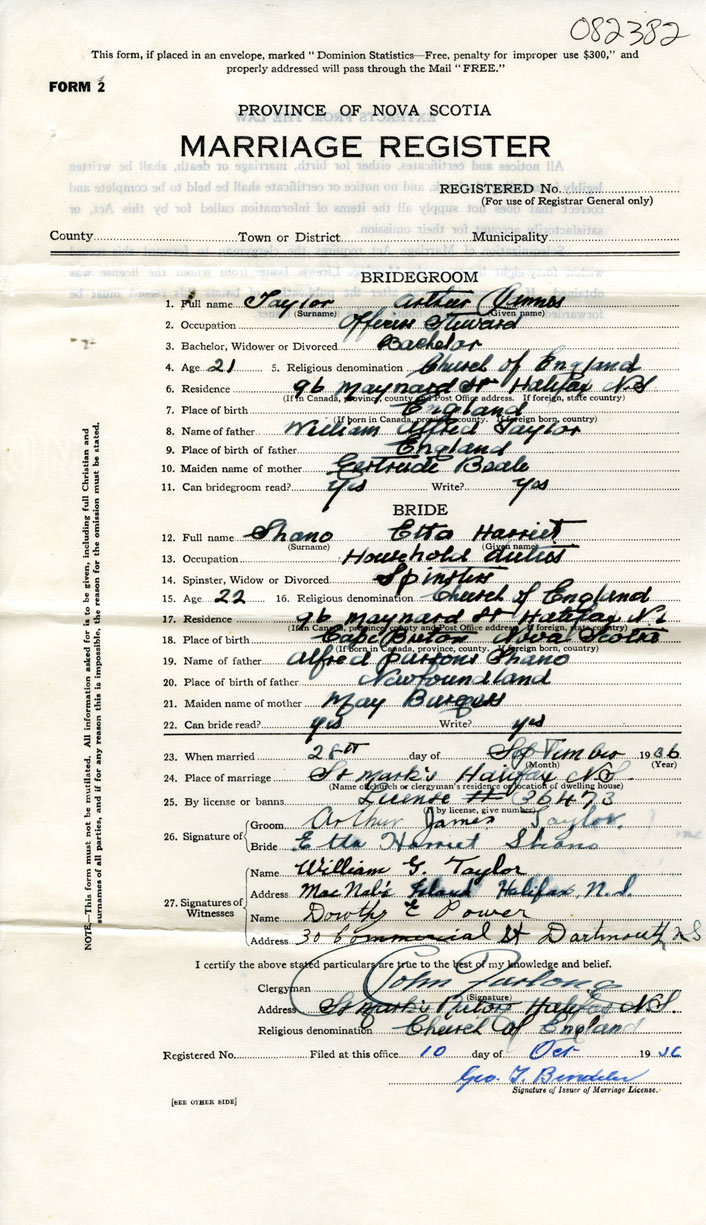 082382
This form, if placed in an envelope, marked "Dominion Statistics—Free, penalty for improper use $300," and
properly addressed will pass through the Mail "FREE."
FORM 2
PROVINCE OF NOVA SCOTIA
MARRIAGE REGISTER
REGISTERED No.
(For use of Registrar General only)
County Town or District Municipality
BRIDEGROOM
1. Full name Taylor Arthur James
(Surname) (Given name)
2. Occupation Officers Steward
3. Bachelor, Widower or Divorced Bachelor
4. Age 21 5. Religious denomination Church of England
6. Residence 96 Maynard St Halifax NS
(If in Canada, province, county and Post Office address. If foreign, state country)
7. Place of birth England
(If born in Canada, province, county. If foreign born, country)
8. Name of father William Alfred Taylor
9. Place of birth of father England
10. Maiden name of mother Gertrude Beale
11. Can bridegroom read? Yes Write? Yes
BRIDE
12. Full name Shano Etta Harriet
(Surname) (Given name)
13. Occupation Household duties
14. Spinster, Widow or Divorced Spinster
15. Age 22 16. Religious denomination Church of England
17. Residence 96 Maynard St Halifax NS
(If in Canada, province, county and Post Office address. If foreign, state country)
18. Place of birth Cape Breton Nova Scotia
(If born in Canada, province, county. If foreign born, country)
19. Name of father Alfred Parsons Shano
20. Place of birth of father Newfoundland
21. Maiden name of mother May Burgess
22. Can bride read? yes Write? yes
23. When married 28th day of September 1936
(Month) (Year)
24. Place of marriage St Mark's Halifax NS.
(Name of church or clergyman's residence or location of dwelling house)
25. By license or banns License # 36473
(If by license, give number)
26. Signature of Groom Arthur James Taylor.
Bride Etta Harriet Shano
27. Signatures of Witnesses
Name William G. Taylor
Address MacNab's Island Halifax N.S.
Name Dorothy E Power
Address 30 Commercial St Dartmouth NS
I certify the above stated particulars are true to the best of my knowledge and belief.
Clergyman John Furlong
(Signature)
Address St Mark's Halifax NS.
Religious denomination Church of England
Registered No. Filed at this office 10 day of Oct 1936
Geo. T.
Signature of Issuer of Marriage License.
[SEE OTHER SIDE]
NOTE—This form must not be mutilated. All information asked for is to be given, including full Christian and
surnames of all parties, and if for any reason this is impossible, the reason for the omission must be stated.